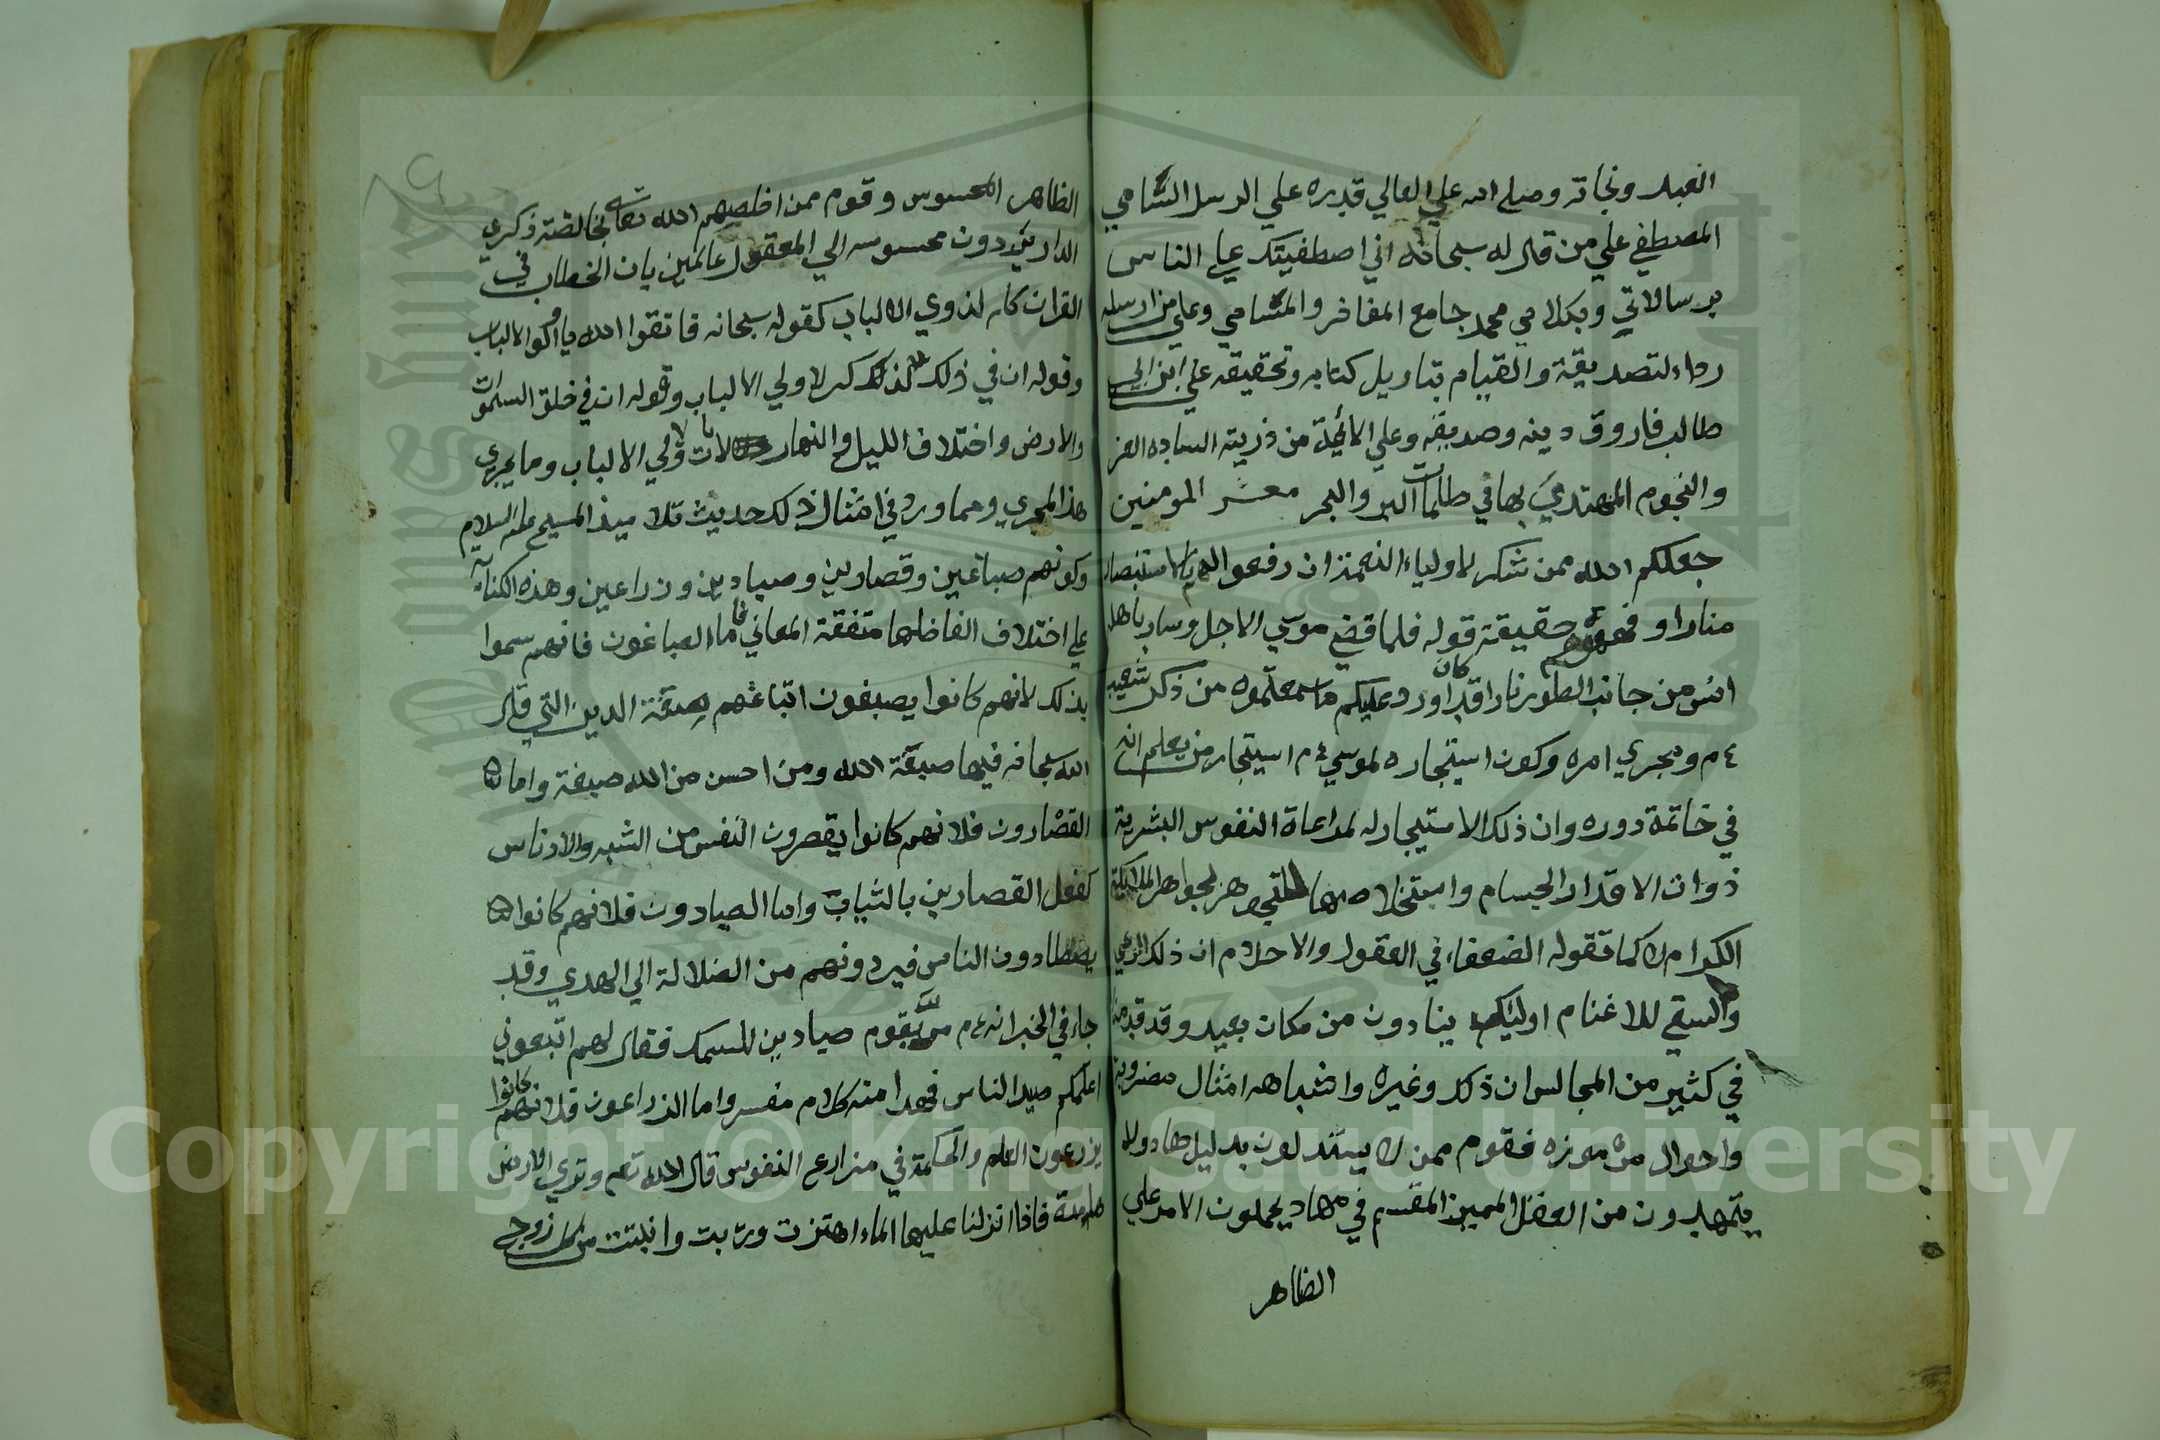 العبد ونجاته وصلي الله علي العالي قدره علي الرسل السامي
المصطفي علي من قال له سبحانه اني اصطفيتك علي الناس
برسالاتي وبكلامي محمد جامع المفاخر والمسامي وعلي من ارسله
رداء لتصديقه والقيام بتاويل كتابه وتحقيقه علي ابن ابي
طالب فاروق دينه وصديقه وعلي الائمة من ذريته الساده الغر
والنجوم المهتدي بها في ظلمات البر والبحر معشر المومنين
جعلكم الله ممن شكر لاولياء النعمة ان رفعوا لهم بالاستبصار
منارا وفهموه حقيقة قوله فلما قضي موسي الاجل وسار باهله
انس من جانب الطور نارا قد كان اورد عليكم ما سمعتموه من ذكر شعيب
ع م ومجري امره وكون استيجاره لموسي ع م استيجار من يعلم انه
في خاتمة دوره وان ذلك الاستيجار له لمراعاة النفوس البشرية
ذوات الاقدار الجسام واستخلاصها للتجوهر بجواهر الملائكة
الكرام لا كما تقوله الضعفاء في العقول والاحلام ان ذلك الرعي
والسقي للاغنام اوليك ينادون من مكان بعيد وقد قدمنا
في كثير من المجالس ان ذلك وغيره واشباهه امثال مضروبة
واحوال مرموزه فقوم ممن لا يستدلون بدليل هاد ولا
يتمهدون من العقل المبين المقسم في مهاد يحملون الامر علي
الظاهر
الظاهر المحسوس وقوم ممن اخلصهم الله تعالي بخالصة ذكري
الدار يردون محسوسه الي المعقول عالمين بان الخطاب في
القران كله لذوي الالباب كقوله سبحانه فاتقوا الله يا اولي الالباب
وقوله ان في ذلك لذكري لاولي الالباب وقوله ان في خلق السموات
والارض واختلاف الليل والنهار لايات لاولي الالباب وما يجري
هذا المجري ومما ورد في امثال ذلك حديث تلاميذ المسيح عليه السلام
وكونهم صباغين وقصارين وصيادين وزراعين وهذه الكناية
علي اختلاف الفاظها متفقة المعاني فاما الصباغون فانهم سموا
بذلك لانهم كانوا يصبغون اتباعهم صبغة الدين التي قال
الله سبحانه فيها صبغة الله ومن احسن من الله صبغة واما
القصارون فلانهم كانوا يقصرون النفس من الشبه والادناس
كفعل القصارين بالثياب واما الصيادون فلانهم كانوا
يصطادون الناس فيردونهم من الضلالة الي الهدي وقد
جاء في الخبر انه ع م مر بقوم صيادين للسمك فقال لهم اتبعوني
اعلمكم صيد الناس فهذا منه كلام مفسر واما الزراعون فلانهم كانوا
يزرعون العلم والحكمة في مزارع النفوس قال الله تع وتري الارض
هامدة فاذا انزلنا عليها الماء اهتزت وربت وانبتت من كل زوج
Copyright © King Saud University